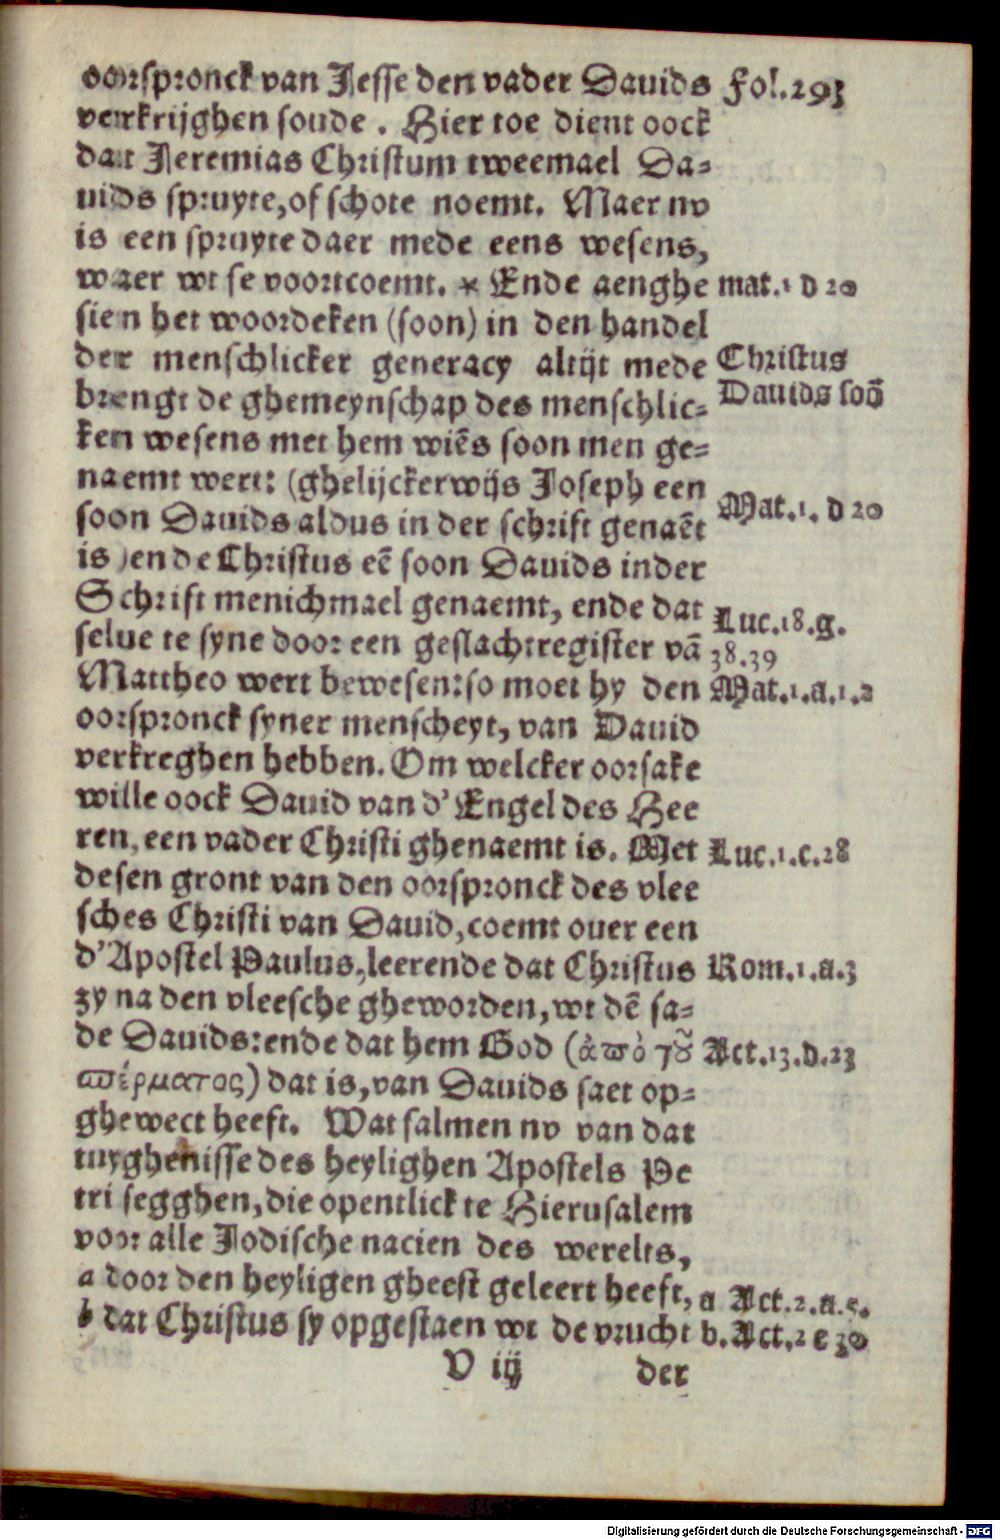 oorspronck van Jesse den vader Dauids Fol.293
verkrijghen soude. Hier toe dient oock
dat Jeremias Christum tweemael Da-
uids spruyte, of schote noemt. Maer nv
is een spruyte daer mede eens wesens,
waer wt se voortcoemt. * Ende aenghe mat.1 d 20
sien het woordeken (soon) in den handel
der menschlicker generacy altijt mede Christus
brengt de ghemeynschap des menschlic- Dauids soõ
ken wesens met hem wiẽs soon men ge-
naemt wert: (ghelijckerwijs Joseph een
soon Dauids aldus in der schrift genaẽt Mat.1. d 20
is) ende Christus eẽ soon Dauids inder
Schrift menichmael genaemt, ende dat Luc.18.g.
selue te syne door een geslachtregister vã 38.39
Mattheo wert bewesen: so moet hy den Mat.1.a.1.2
oorspronck syner menscheyt, van Dauid
verkreghen hebben. Om welcker oorsake
wille oock Dauid van d'Engel des Hee
ren, een vader Christi ghenaemt is. Met Luc.1.c.28
desen gront van den oorspronck des vlee
sches Christi van Dauid, coemt ouer een
d'Apostel Paulus, leerende dat Christus Rom.1.a.3
zy na den vleesche gheworden, wt dẽ sa-
de Dauids: ende dat hem God (ἀπὸ τοῦ Act.13.d.23
σπέρματος) dat is, van Dauids saet op-
ghewect heeft. Wat salmen nv van dat
tuyghenisse des heylighen Apostels Pe
tri segghen, die opentlick te Hierusalem
voor alle Jodische nacien des werelts,
a door den heyligen gheest geleert heeft, a Act.2.a.5.
b dat Christus sy opgestaen wt de vrucht b. Act.2 e 30
V iij der
Digitalisierung gefördert durch die Deutsche Forschungsgemeinschaft - DFG